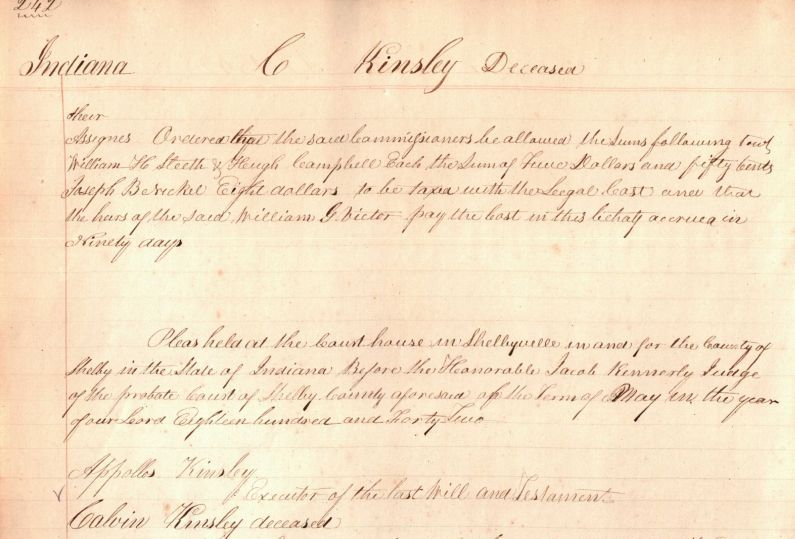 242
Indiana C Kinsley Deceased
their
Assignes Ordered that the said Commissioners be allowed the Sums following towit
William H Sleeth & Hugh Campbell Each the Sum of Two Dollars and fifty Cents
Joseph B Nickel Eight dollars to be taxed with the Leegal Cost and that
the heirs of the said William G. Victer pay the Cost in this behalf accrued in
Ninety days
Pleas held at the Court house in Shelbyville in and for the County of
Shelby in the State of Indiana Before the Honorable Jacob Kennerly Judge
of the probate Court of Shelby County aforesaid of the Term of May in the year
of our Lord Eighteen hundred and Forty Two
Appollos Kinsley
Executor of the last Will and Testament
Calvin Kinsley deceased